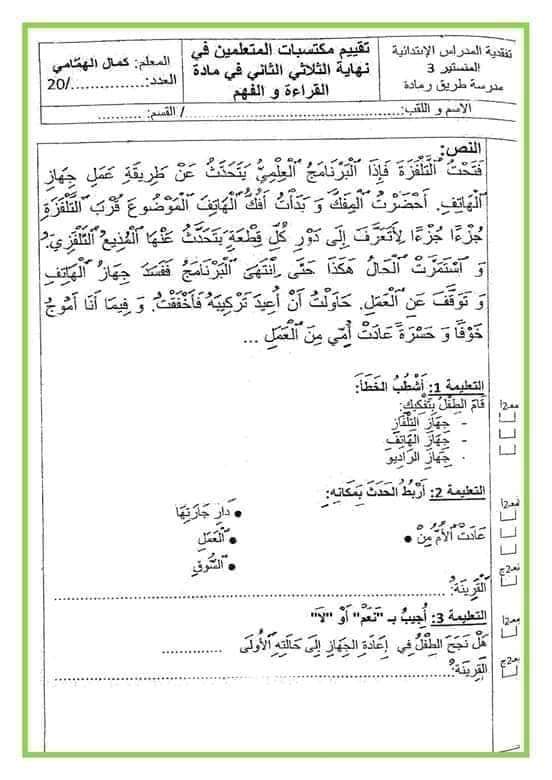 تفقدية المدارس الإبتدائية
المنستير 3
مدرسة طريق رمادة
تقييم مكتسبات المتعلمين في
نهاية الثلاثي الثاني في مادة
القراءة و الفهم
المعلم: كمال الهمّامي
العدد:................/20
الاسم و اللقب:............................................./ القسم: ................
النص:
فَتَحْتُ ٱلتَّلْفَزَةَ فَإِذَا ٱلْبَرْنَامَجُ ٱلْعِلْمِيُّ يَتَحَدَّثُ عَنْ طَرِيقَةِ عَمَلِ جِهَازِ
ٱلْهَاتِفِ. أَحْضَرْتُ ٱلْمِفَكَّ وَ بَدَأْتُ أَفُكُّ ٱلْهَاتِفَ ٱلْمَوْضُوعَ قُرْبَ ٱلتَّلْفَزَةِ
جُزْءًا جُزْءًا لِأَتَعَرَّفَ إِلَى دَوْرِ كُلِّ قِطْعَةٍ يَتَحَدَّثُ عَنْهَا ٱلْمُذِيعُ ٱلتَّلْفَزِيُّ.
وَ ٱسْتَمَرَّتْ ٱلْحَالُ هَكَذَا حَتَّى ٱِنْتَهَى ٱلْبَرْنَامَجُ فَفَسَدَ جِهَازُ ٱلْهَاتِفِ
وَ تَوَقَّفَ عَنِ ٱلْعَمَلِ. حَاوَلْتُ أَنْ أُعِيدَ تَرْكِيبَهُ فَأَخْفَقْتُ. وَ فِيمَا أَنَا أَمُوجُ
خَوْفًا وَ حَسْرَةً عَادَتْ أُمِّي مِنَ ٱلْعَمَلِ ...
التعليمة 1: أَشْطُبُ الخَطَأَ:
قَامَ الطِّفْلُ بِتَفْكِيكِ:
- جِهَازِ التِّلْفَازِ
- جِهَازِ الْهَاتِفِ
- جِهَازِ الرَّادِيُو
مع2أ
التعليمة 2: أَرْبُطُ الحَدَثَ بِمَكَانِهِ:
مع2أ
• دَارِ جَارَتِهَا
عَادَتْ ٱلْأُمُّ مِنْ •
• ٱلْعَمَلِ
• ٱلسُّوقِ
مع2ج
ٱلْقَرِينَةُ: ................................................................
التعليمة 3: أُجِيبُ بـ "نَعَمْ" أَوْ "لَا"
مع2أ
هَلْ نَجَحَ الطِّفْلُ فِي إِعَادَةِ الجِهَازِ إِلَى حَالَتِهِ ٱلْأُولَى .............
مع2ج
القَرِينَةُ: ................................................................